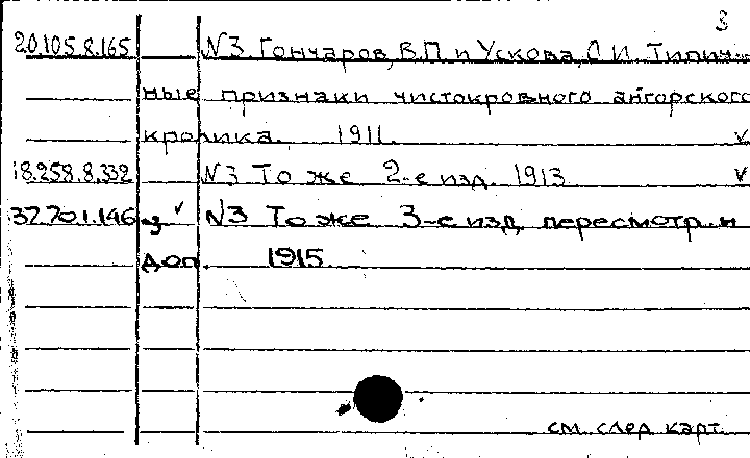 3
20.105.8.165 N3 Гончаров, В.П. и Ускова, О.И. Типич-
ные признаки чистокровного ангорского
кролика. 1911. ✓
18.258.8.332 N3 То же 2-е изд. 1913 ✓
37.20.1.146 ✓ N3 То же 3-е изд. пересмотр. и
доп. 1915
см. след. карт.